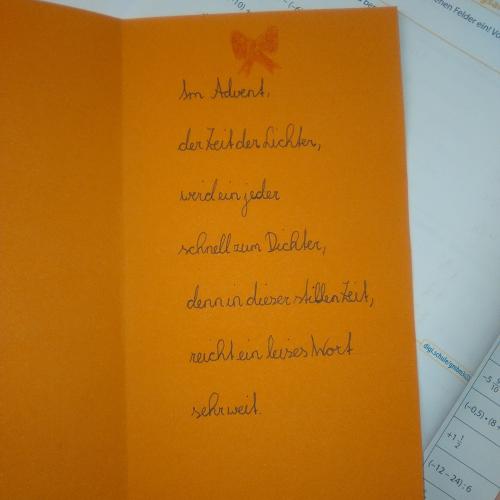 Im Advent,
der Zeit der Lichter,
wird ein jeder
schnell zum Dichter,
denn in dieser stillen Zeit,
reicht ein leises Wort
sehr weit.
enen Felder ein! Vo
digi.schule/gmbm3k
(-0,5) • (8 +
+1 1/2
(-12 - 24) : 6